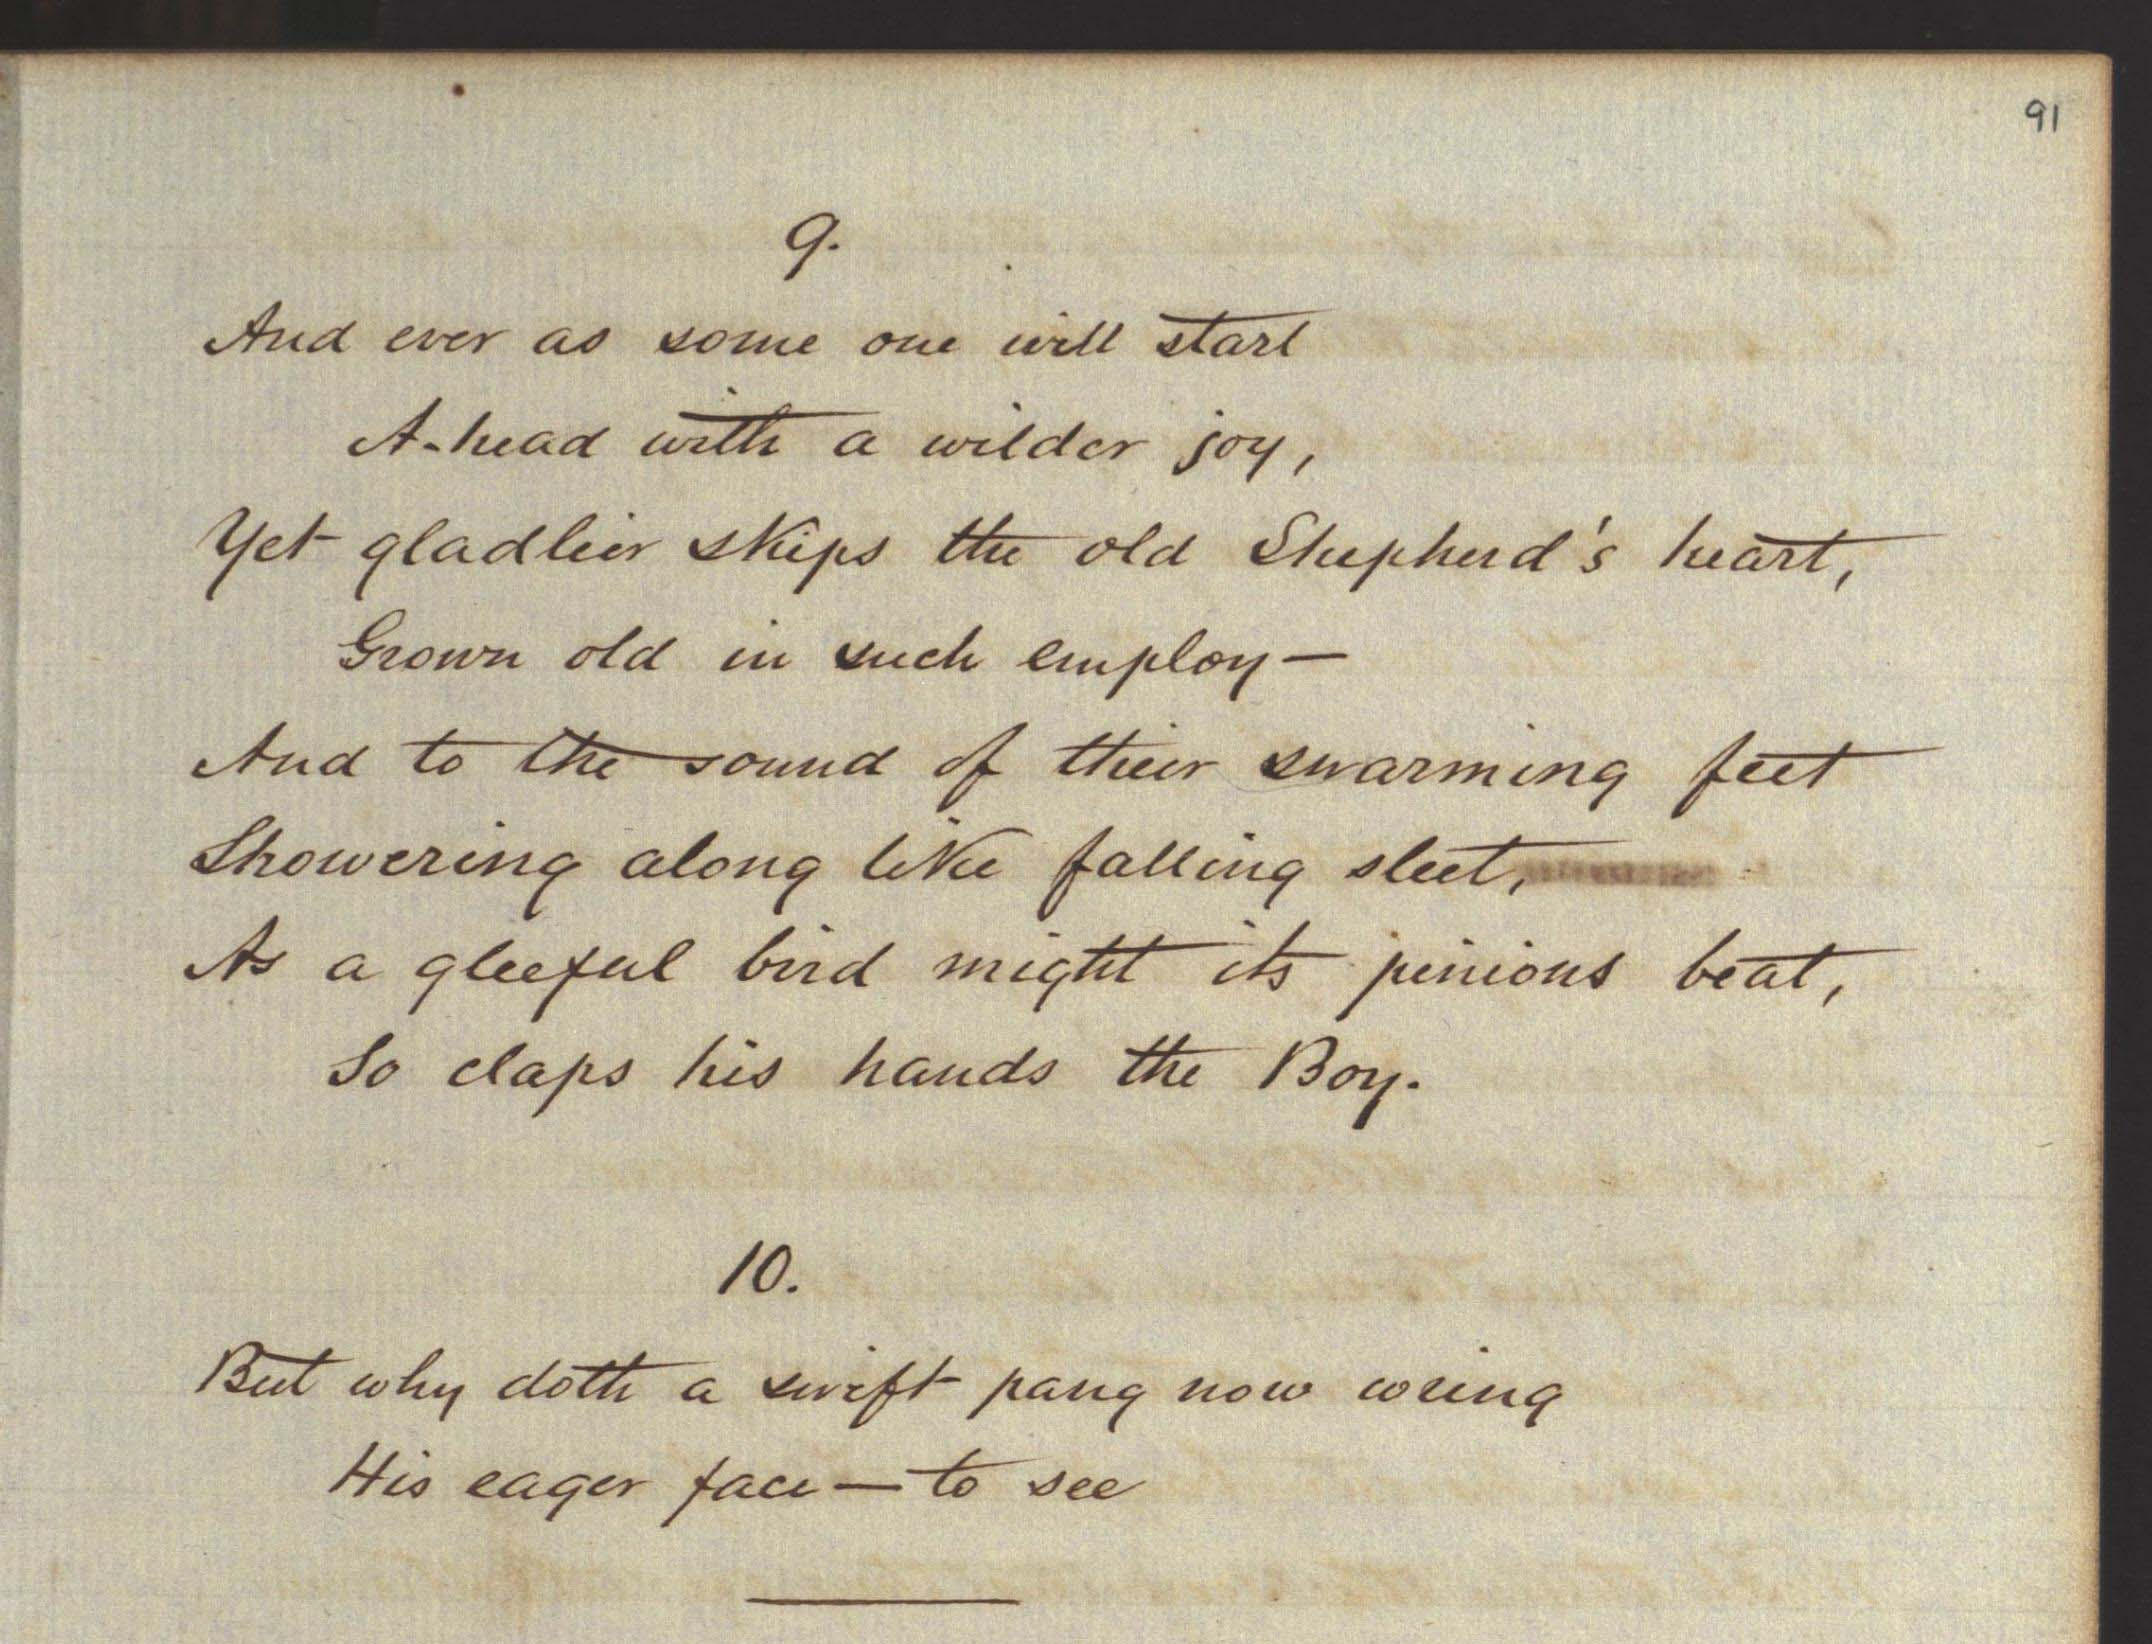 91
9.
And ever as some one will start
A-head with a wilder joy,
Yet gladlier skips the old Shepherd's heart,
Grown old in such employ—
And to the sound of their swarming feet
Showering along like falling sleet,
As a gleeful bird might its pinions beat,
So claps his hands the Boy.
10.
But why doth a swift pang now wring
His eager face — to see